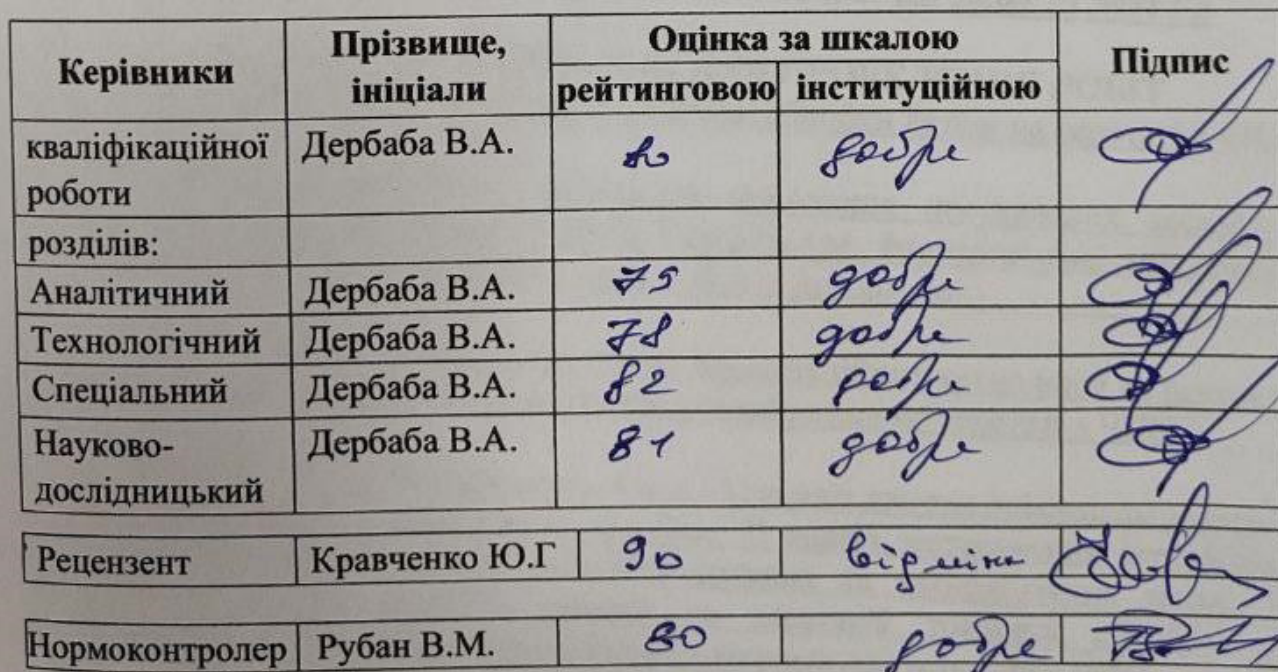 Керівники Прізвище, ініціали Оцінка за шкалою Підпис
рейтинговою інституційною
кваліфікаційної роботи Дербаба В.А. 80 добре
розділів:
Аналітичний Дербаба В.А. 75 добре
Технологічний Дербаба В.А. 78 добре
Спеціальний Дербаба В.А. 82 добре
Науково-дослідницький Дербаба В.А. 81 добре
Рецензент Кравченко Ю.Г 90 відмінно
Нормоконтролер Рубан В.М. 80 добре